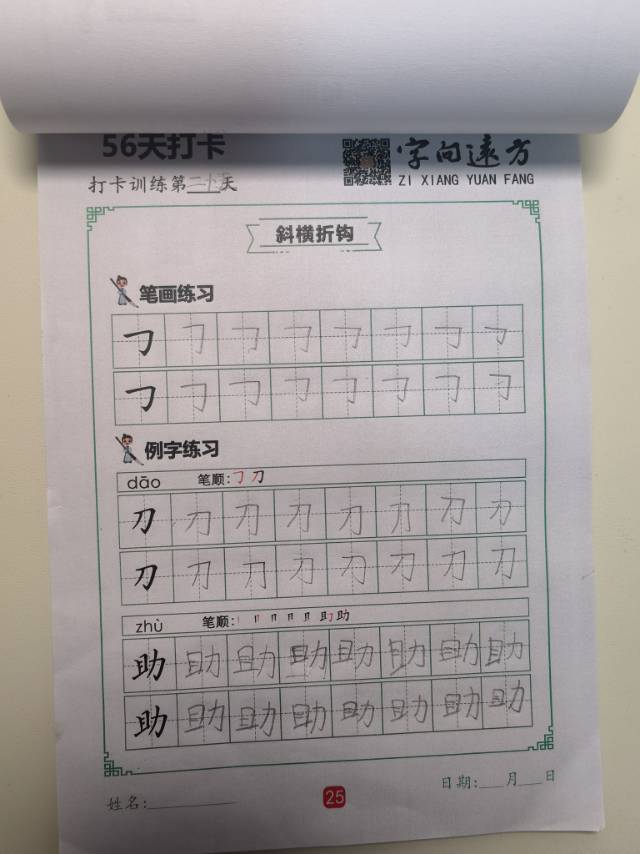 56天打卡
字向远方
打卡训练第二十天
ZI XIANG YUAN FANG
斜横折钩
笔画练习
㇆ ㇆ ㇆ ㇆ ㇆ ㇆ ㇆ ㇆
㇆ ㇆ ㇆ ㇆ ㇆ ㇆ ㇆ ㇆
例字练习
dāo 笔顺:㇆刀
刀 刀 刀 刀 刀 刀 刀 刀
刀 刀 刀 刀 刀 刀 刀 刀
zhù 笔顺: 助
助 助 助 助 助 助 助 助
助 助 助 助 助 助 助 助
姓名: 25 日期: 月 日